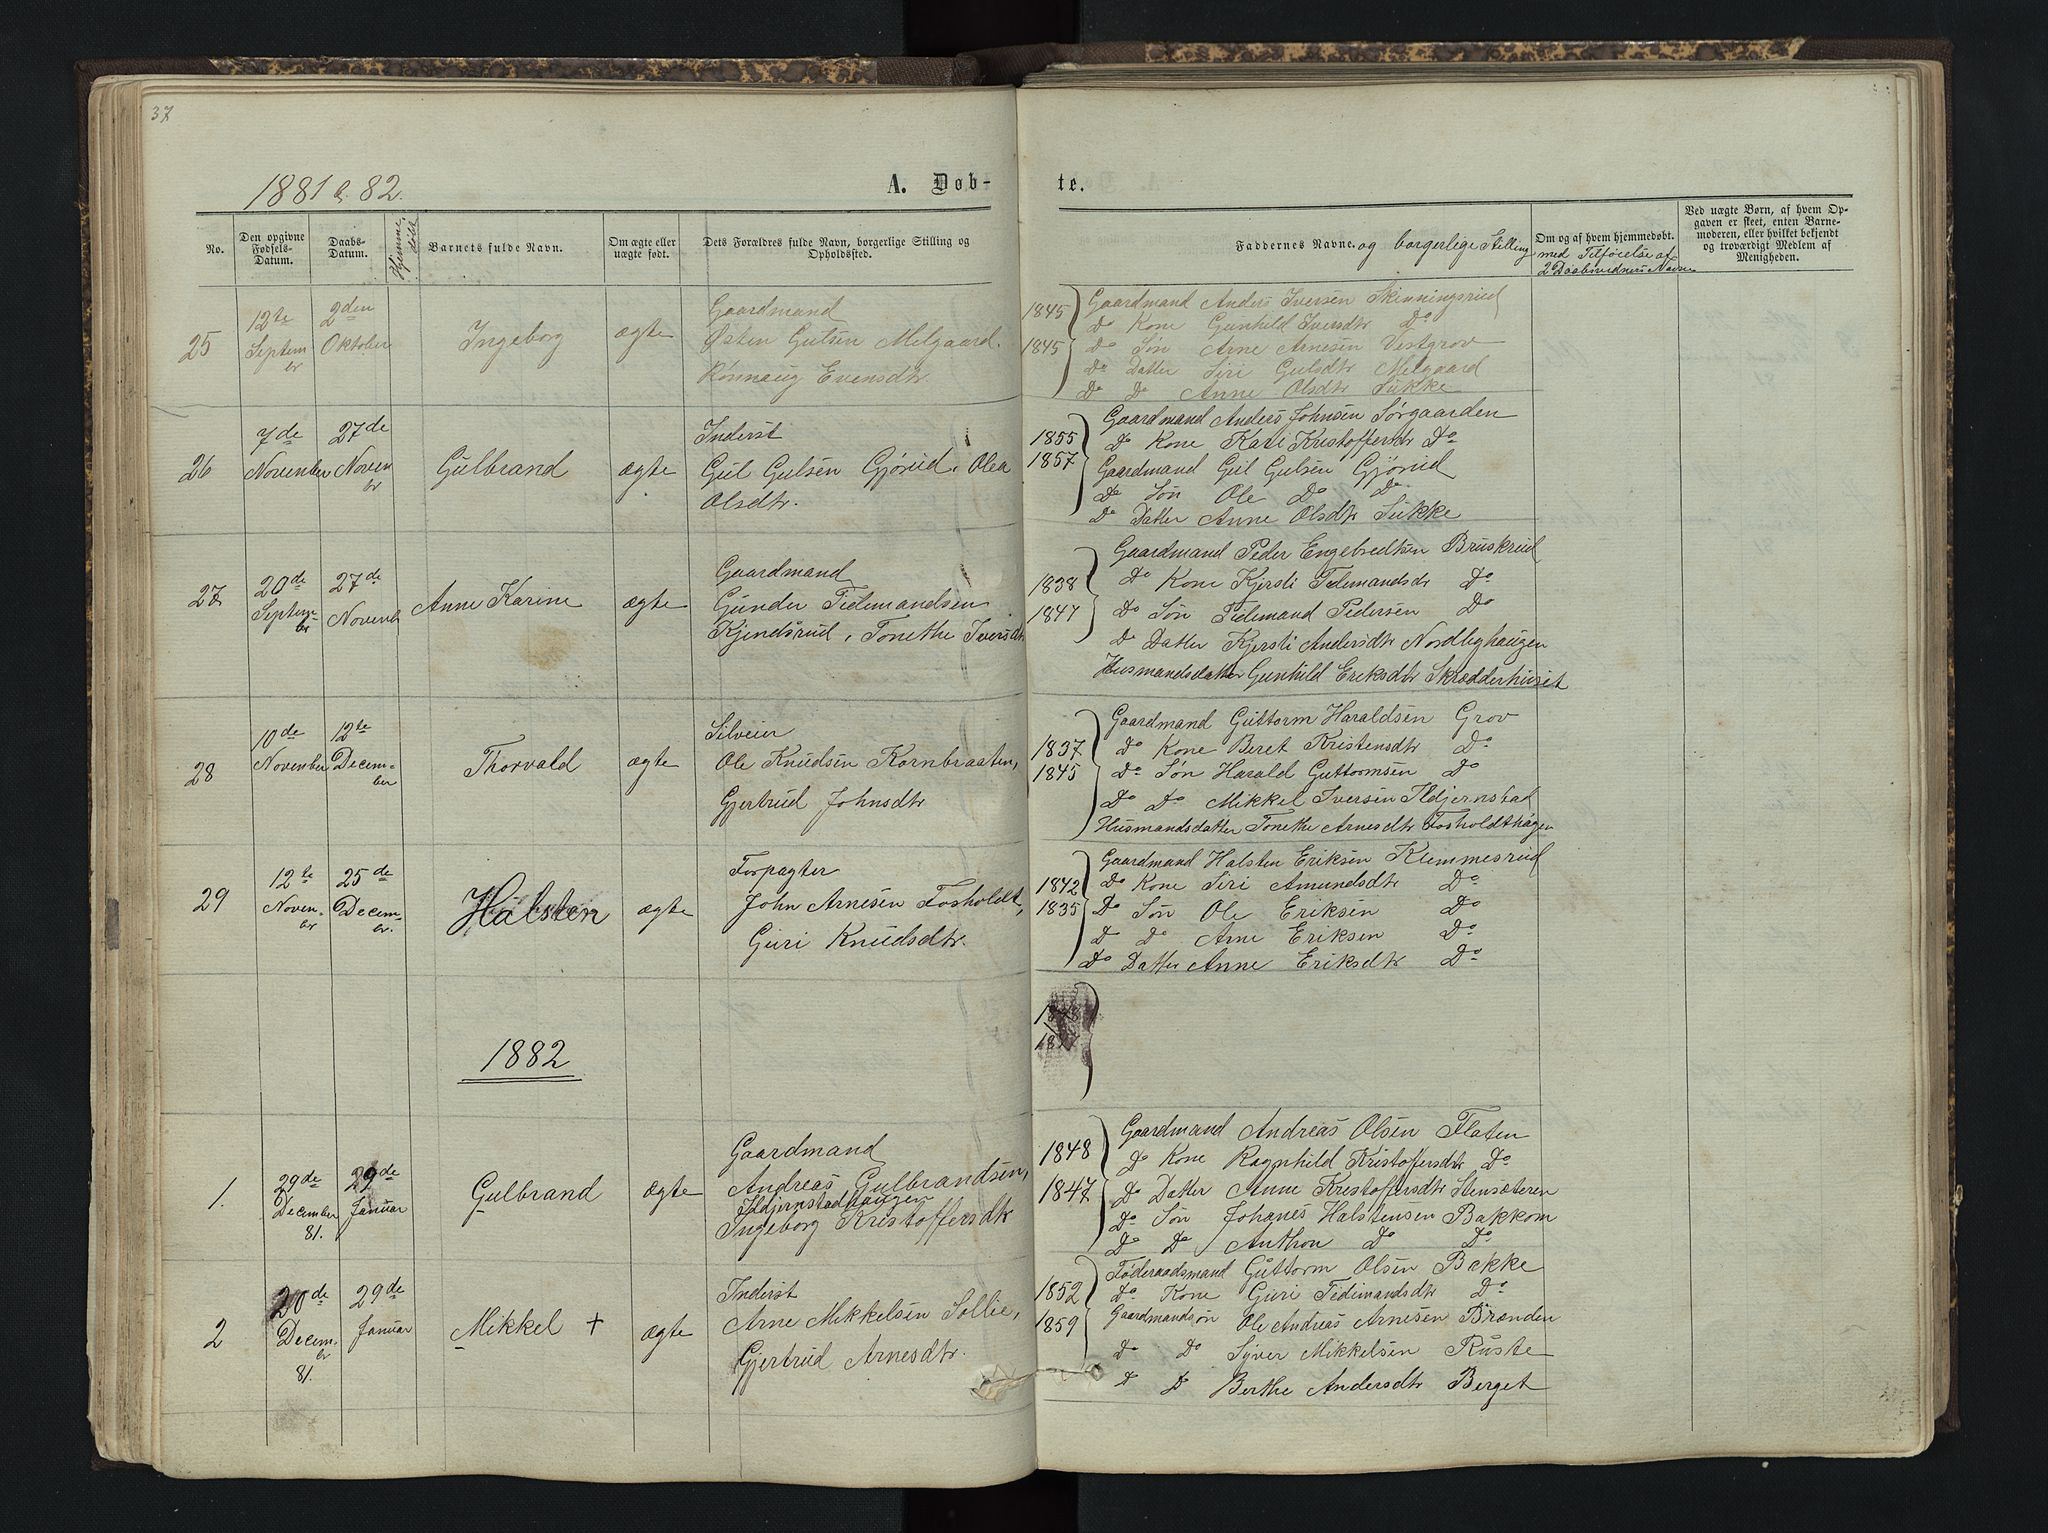 37
1881 & 82.
A. Døb-
te.
No.
Den opgivne Fødsels-Datum.
Daabs-Datum.
Hjemmedøbt
Barnets fulde Navn.
Om ægte eller uægte født.
Dets Forældres fulde Navn, borgerlige Stilling og Opholdsted.
Faddernes Navne. og borgerlige Stilling
Om og af hvem hjemmedøbt. med Tilføielse af 2 Daabsvidners Navne
Ved uægte Børn, af hvem Opgaven er skeet, enten Barnemoderen, eller hvilket bekjendt og troværdigt Medlem af Menigheden.
25
12te September
2den Oktober
Ingeborg
ægte
Gaardmand
Østen Gulsen Melgaard.
Rønnaug Evensdtr.
1845
1845
Gaardmand Anders Iversen Skinningsrud
Do Kone Gunhild Iversdtr Do
Do Søn Arne Arnesen Vestgrov
Do Datter Siri Gulsdtr Melgaard
Do Do Anne Olsdtr Sukke
26
7de November
27de November
Gulbrand
ægte
Inderst
Gul Gulsen Gjørud, Olea
Olsdtr.
1855
1857
Gaardmand Anders Johnsen Sørgaarden
Do Kone Kari Kristoffersdtr Do
Gaardmand Gul Gulsen Gjørud
Do Søn Ole Do Do
Do Datter Anne Olsdtr Sukke
27
20de September
27de Novemb
Anne Karine
ægte
Gaardmand
Gunder Tidemandsen
Kjendsrud, Tonethe Iversdtr
1838
1847
Gaardmand Peder Engebredtsen Bruskrud
Do Kone Kjersti Tidemandsdr Do
Do Søn Tidemand Pedersen Do
Do Datter Kjersti Andersdtr Nordbyhaugen
Husmandsdatter Gunhild Eriksdtr Skrædderhuset
28
10de November
12te December
Thorvald
ægte
Silveier
Ole Knudsen Kornbraaten,
Gjertrud Johnsdtr
1837
1845
Gaardmand Guttorm Haraldsen Grov
Do Kone Beret Kristensdtr Do
Do Søn Harald Guttormsen Do
Do Do Mikkel Iversen Ildjernstad
Husmandsdatter Tonethe Arnesdtr Fosholdthagen
29
12te November
25de December.
Halsten
ægte
Forpagter
John Arnesen Fosholdt,
Guri Knudsdtr.
1842
1835
Gaardmand Halsten Eriksen Klemmesrud
Do Kone Siri Amundsdtr Do
Do Søn Ole Eriksen Do
Do Do Arne Eriksen Do
Do Datter Anne Eriksdtr Do
1882
1848
1847
1.
29de December 81.
29de Januar
Gulbrand
ægte
Gaardmand
Andreas Gulbrandsen,
Ildjernstadhaugen
Ingeborg Kristoffersdtr
1848
1847
Gaardmand Andreas Olsen Flaten
Do Kone Ragnhild Kristoffersdtr Do
Do Datter Anne Kristoffersdtr Stensæteren
Do Søn Johanes Halstensen Bakkom
Do Do Anthon Do Do
2
20de December 81.
29de Januar
Mikkel +
ægte
Inderst
Arne Mikkelsen Sollie,
Gjertrud Arnesdtr.
1852
1859
Føderaadsmand Guttorm Olsen Bakke
Do Kone Guri Tidemandsdtr Do
Gaardmandsøn Ole Andreas Arnesen Brænden
Do Do Syver Mikkelsen Ruste
D D Berthe Andersdtr Berget